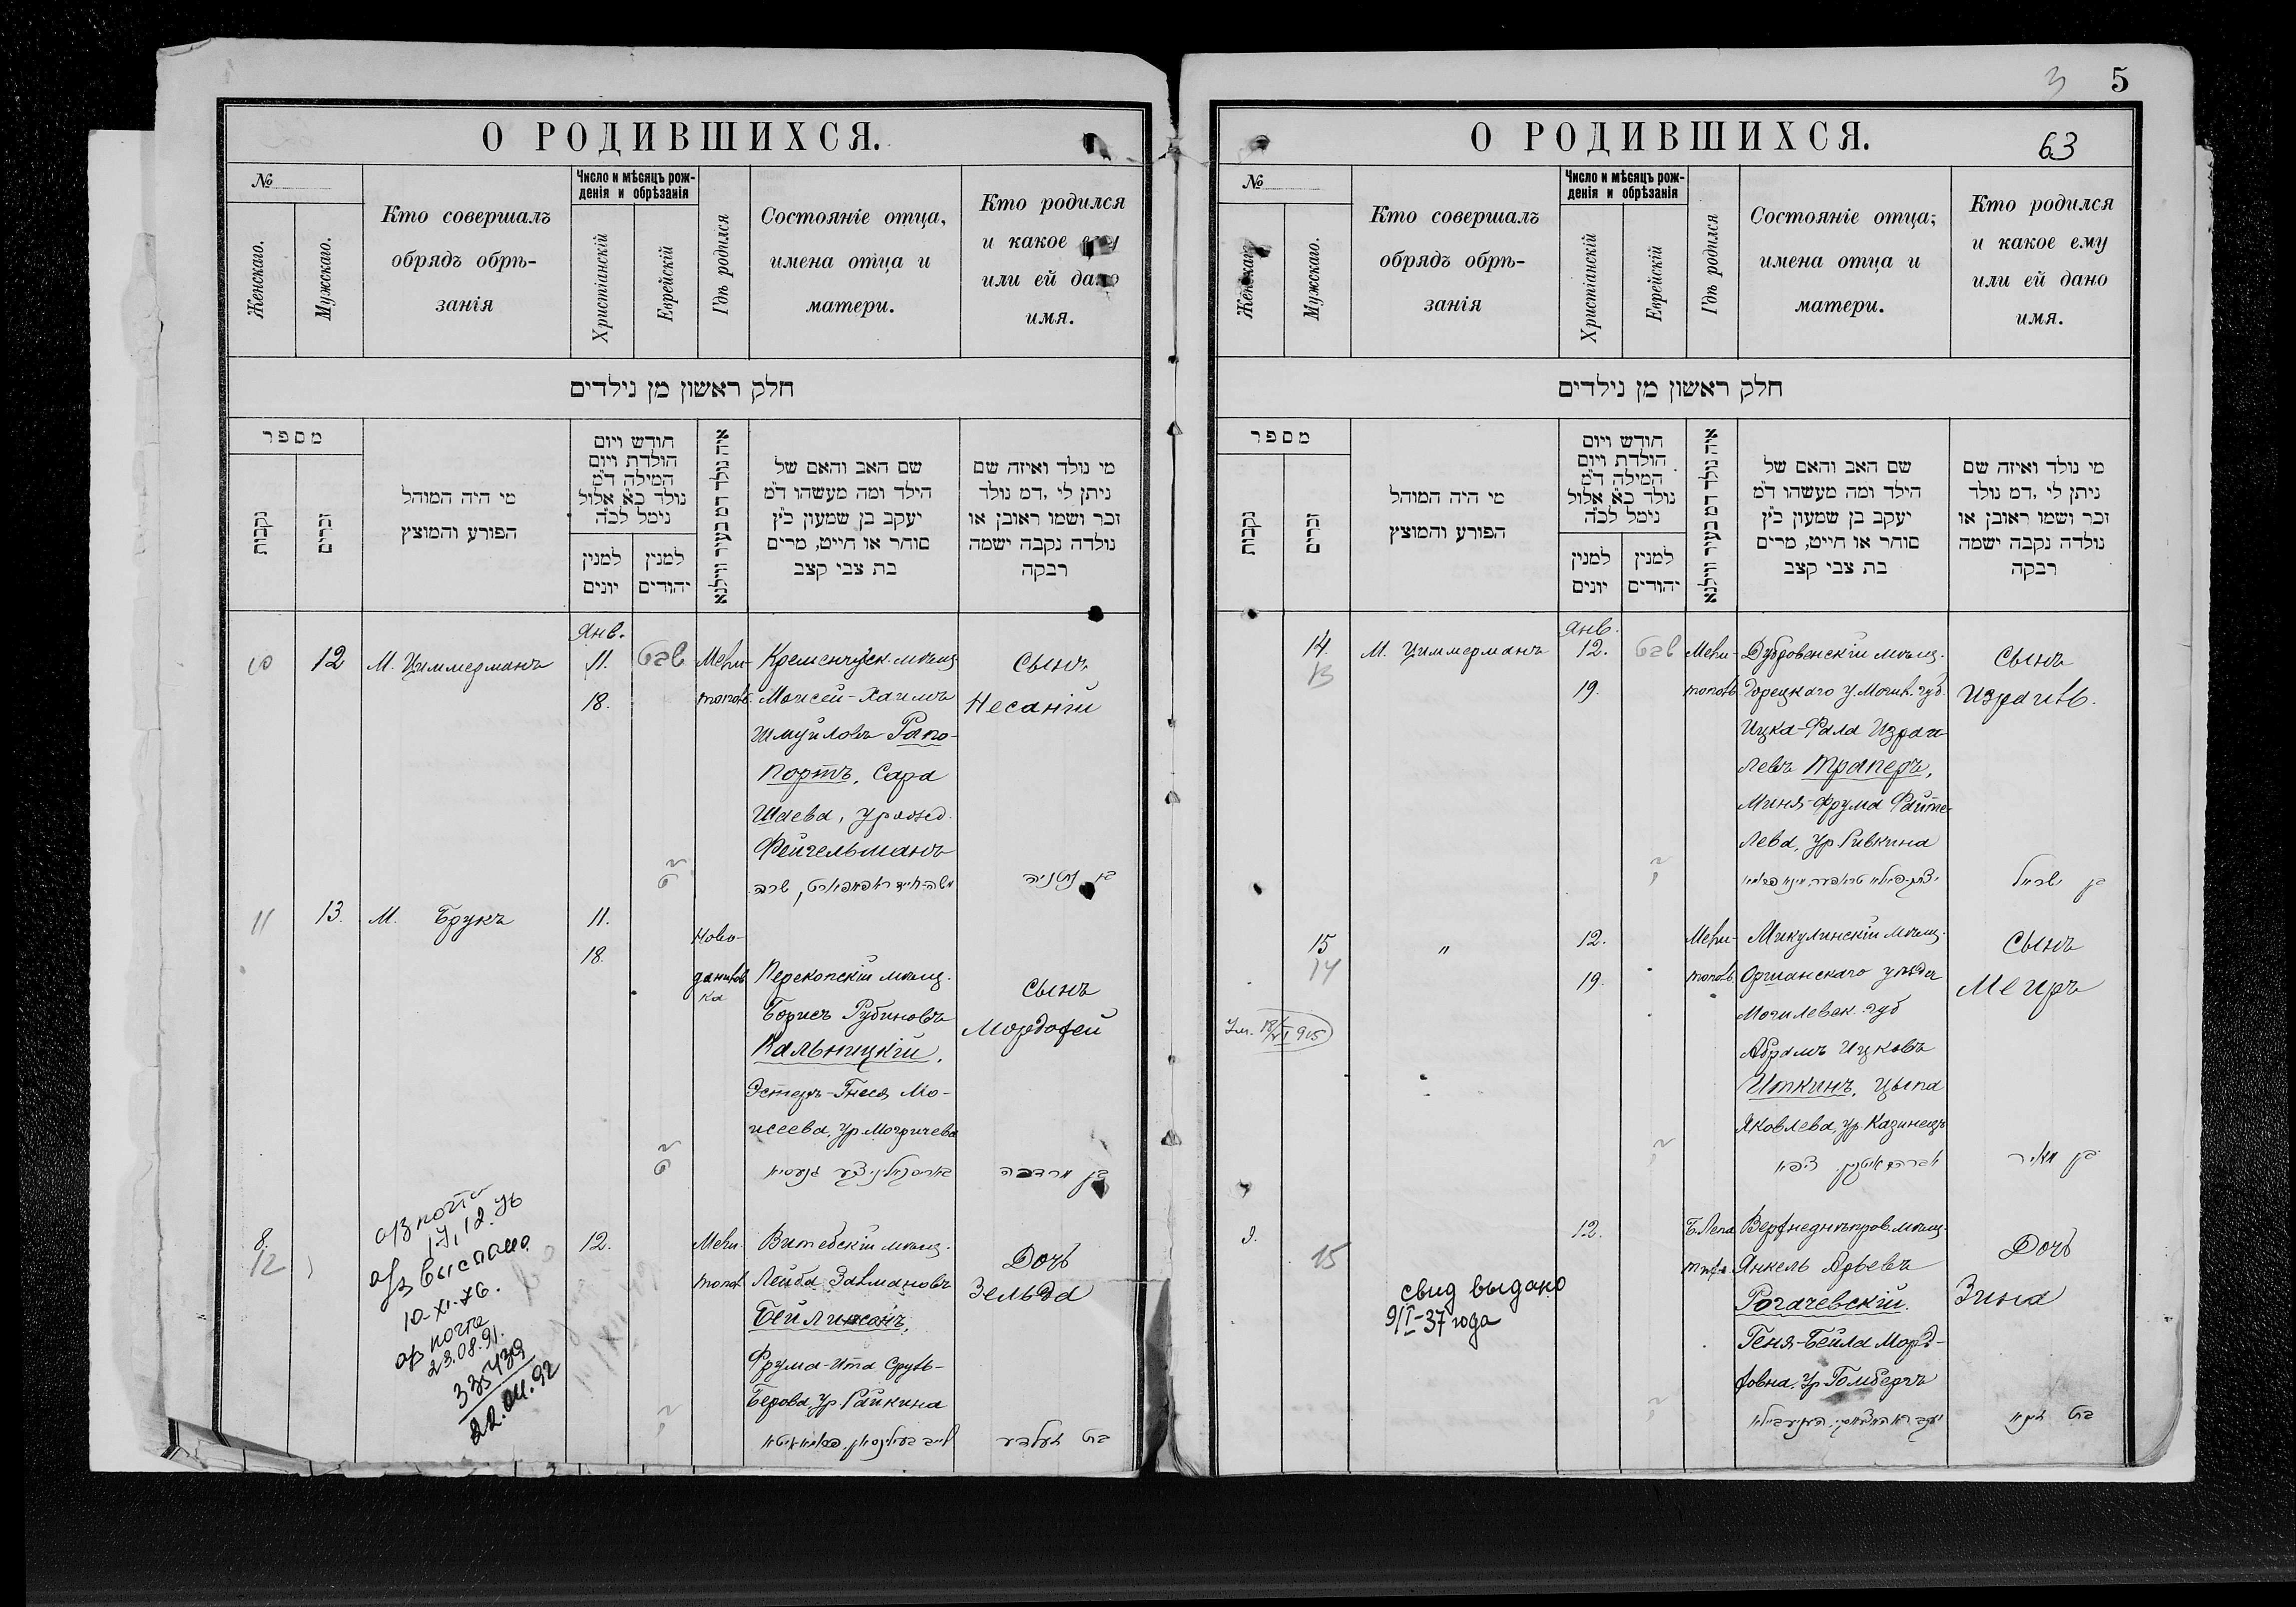 О РОДИВШИХСЯ.
№
Женскаго.
Мужскаго.
Кто совершалъ
обрядъ обрѣ-
занія
Число и мѣсяцъ рож-
денія и обрѣзанія
Христіанскій
Еврейскій
Гдѣ родился
Состояніе отца,
имена отца и
матери.
Кто родился
и какое ему
или ей дано
имя.
חלק ראשון מן נילדים
מספר
נקבות
זכרים
מי היה המוהל
הפורע והמוצץ
חודש ויום
הולדת ויום
המילה ד״מ
נולד כ״א אלול
נימל לכ״ה
למנין
יונים
למנין
יהודים
איה נולד דמ בעיר ווילנא
שם האב והאם של
הילד ומה מעשהו ד״מ
יעקב בן שמעון כ״ץ
סוחר או חייט, מרים
בת צבי קצב
מי נולד ואיזה שם
ניתן לי, דמ נולד
זכר ושמו ראובן או
נולדה נקבה ישמה
רבקה
10
12
М. Циммерманъ
Янв.
11.
18.
שבט
Мели-
топол.
Кременчугск. мѣщ.
Моисей-Хаимъ
Шмуйловъ Рапо-
портъ, Сара
Шаева, урожд.
Фейгельманъ
Сынъ
Несаній
בן נתניה
11
13.
М. Брукъ
11.
18.
Ново-
данилов
ка
Перекопскій мѣщ.
Борисъ Рубиновъ
Кальницкій,
Эстеръ-Гнеся Мо-
исеева, ур. Могричева
Сынъ
Мордохей
בן מרדכה
8.
12
12.
Мели-
топол
Витебскій мѣщ.
Лейба Залмановъ
Бейлинсонъ,
Фрума-Ита Сруль-
Берова, ур. Райкина
Дочь
Зельда
בת זעלדע
а/з почта
17.12.
а/з выслано
10-XI-76.
а/з почта
23.08.91.
335439
22.04.92
3
5
О РОДИВШИХСЯ.
63
№
Женскаго.
Мужскаго.
Кто совершалъ
обрядъ обрѣ-
занія
Число и мѣсяцъ рож-
денія и обрѣзанія
Христіанскій
Еврейскій
Гдѣ родился
Состояніе отца;
имена отца и
матери.
Кто родился
и какое ему
или ей дано
имя.
חלק ראשון מן נילדים
מספר
נקבות
זכרים
מי היה המוהל
הפורע והמוצץ
חודש ויום
הולדת ויום
המילה ד״מ
נולד כ״א אלול
נימל לכ״ה
למנין
יונים
למנין
יהודים
איה נולד דמ בעיר ווילנא
שם האב והאם של
הילד ומה מעשהו ד״מ
יעקב בן שמעון כ״ץ
סוחר או חייט, מרים
בת צבי קצב
מי נולד ואיזה שם
ניתן לי, דמ נולד
זכר ושמו ראובן או
נולדה נקבה ישמה
רבקה
14.
13
М. Циммерманъ
Янв.
12.
19.
שבט
Мели-
топол.
Дубровенскій мѣщ.
Горецкаго у. Могил. губ.
Ицка-Фала Израи-
левъ Траперъ,
Миня-Фрума Файте-
лева, ур. Ривкина
Сынъ
Израиль.
בן ישראל
15
14
"
12.
19.
Мели-
топол.
Микулинскій мѣщ.
Оршанскаго уѣзда
Могилевск. губ
Абрамъ Ицковъ
Иткинъ, Цыпа
Яковлева, ур. Казинецъ
Сынъ
Меиръ
בן מאיר
9.
15
12.
Б. Лепа
тиха
Верхнеднѣпров. мѣщ.
Янкель Арьевъ
Рогачевскій.
Геня-Бейла Морд-
ховна, ур. Гомбергъ
Дочь
Зина
בת זינא
свид выдано
9/I-37 года